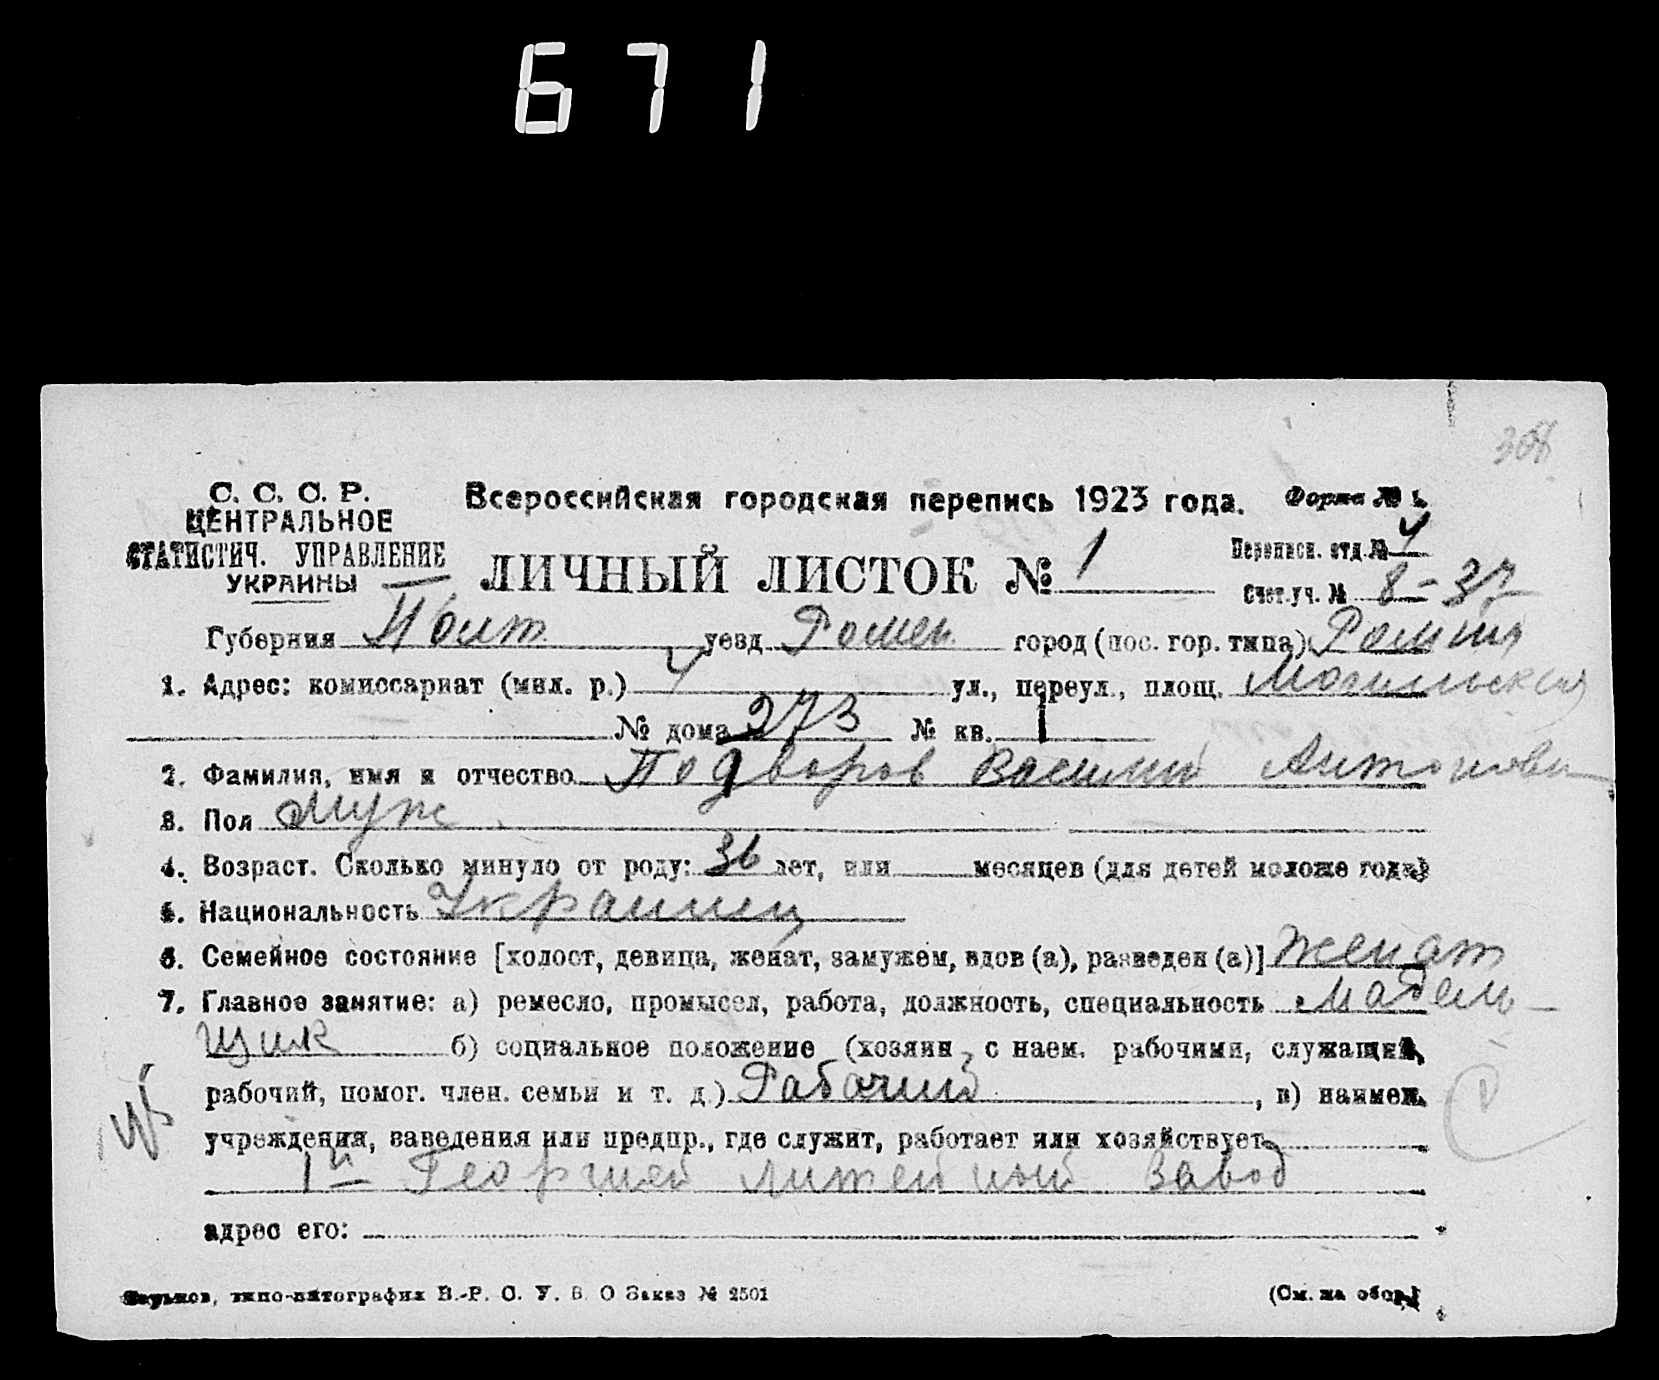 671
308
С. С. С. Р.
ЦЕНТРАЛЬНОЕ
СТАТИСТИЧ. УПРАВЛЕНИЕ
УКРАИНЫ
Всероссийская городская перепись 1923 года. Форма № 1.
ЛИЧНЫЙ ЛИСТОК № 1
Переписн. отд. № 4
Счет. уч. № 8-37
Губерния Полт. уезд Ромен. город (пос. гор. типа) Ромны
1. Адрес: комиссариат (мил. р.) 4 ул., переул., площ. Могильская
№ дома 273 № кв. 1
2. Фамилия, имя и отчество Подворов Василий Антонови
3. Пол Муж.
4. Возраст. Сколько минуло от роду: 36 лет, или месяцев (для детей моложе года)
5. Национальность Украинец
6. Семейное состояние [холост, девица, женат, замужем, вдов (а), разведен (а)] Женат
7. Главное занятие: а) ремесло, промысел, работа, должность, специальность Модель-
щик б) социальное положение (хозяин с наем. рабочими, служащий,
рабочий, помог. член. семьи и т. д.) Рабочий, в) наимен.
учреждения, заведения или предпр., где служит, работает или хозяйствует
1й Литейный Завод
адрес его:
Харьков, типо-литография В.-Р. С. У. В. О Заказ № 2501 (См. на обор.)